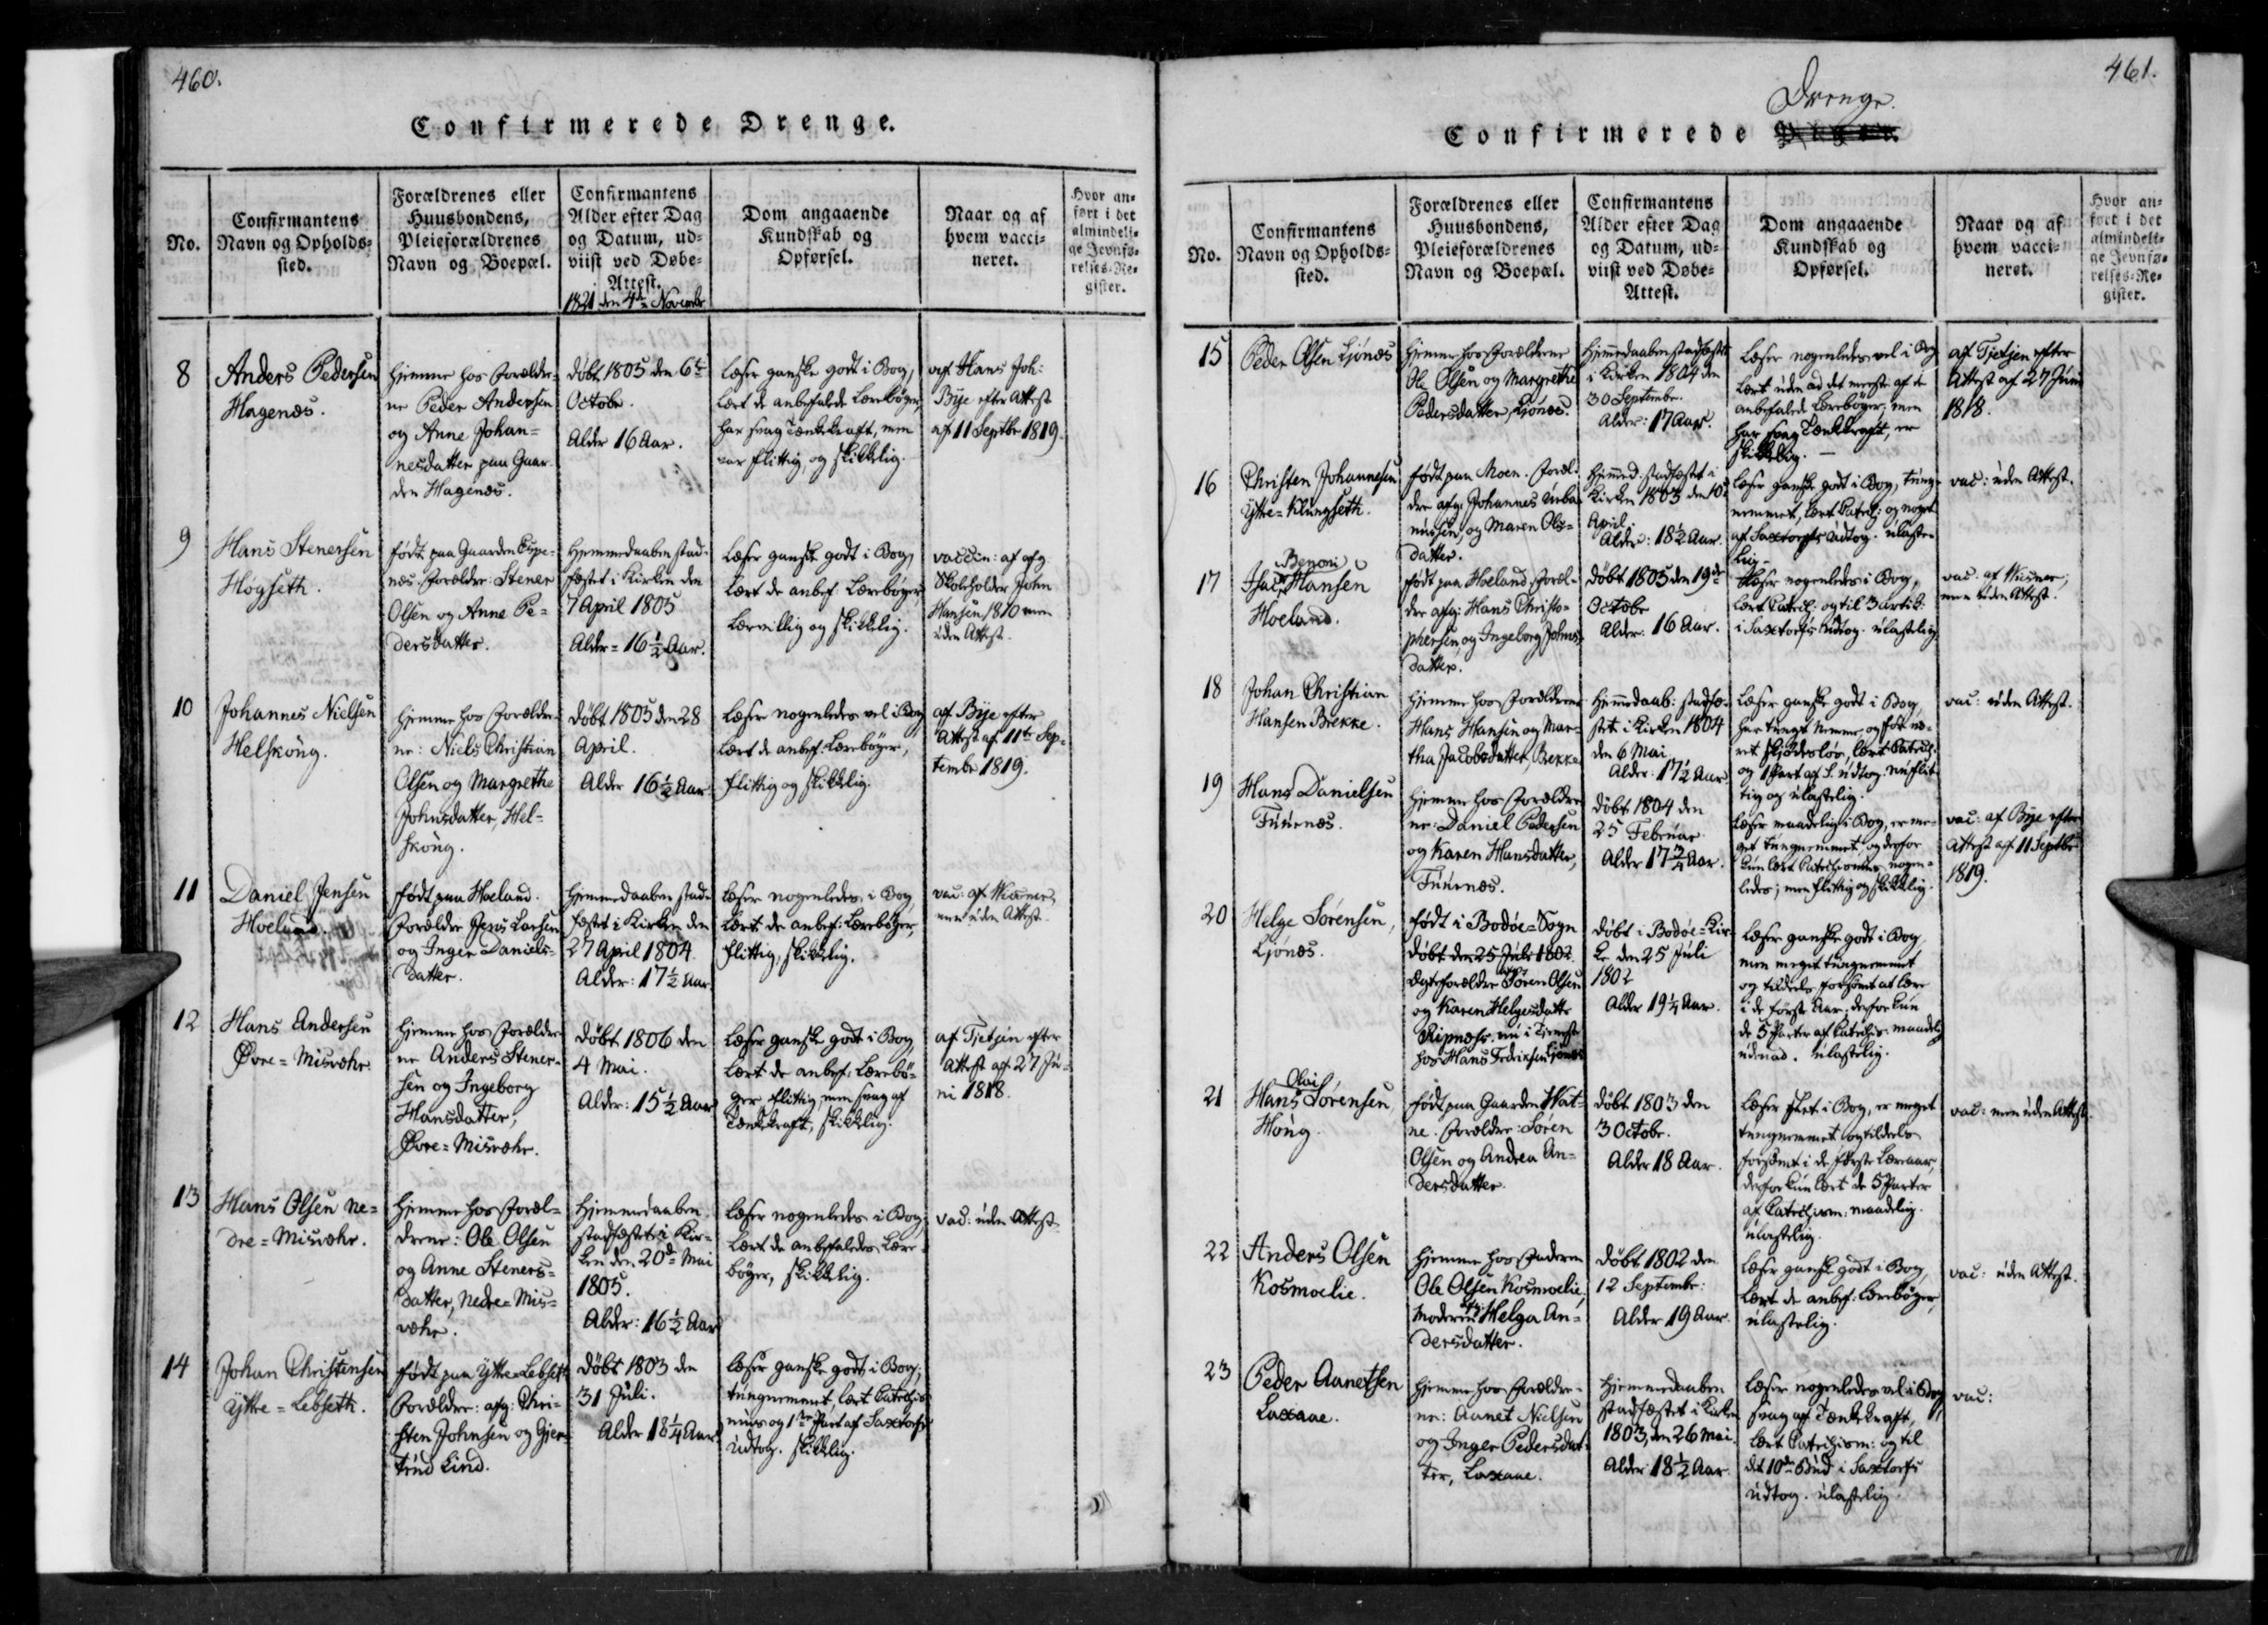 460.
Confirmerede Drenge.
No.
Confirmantens
Navn og Opholds-
sted.
Forældrenes eller
Huusbondens,
Pleieforældrenes
Navn og Boepæl.
Confirmantens
Alder efter Dag
og Datum, ud-
viist ved Døbe-
Attest.
1821 den 4de Novembr
Dom angaaende
Kundskab og
Opførsel.
Naar og af
hvem vacci-
neret.
Hvor an-
ført i det
almindeli-
ge Jevnfø-
relses-Re-
gister.
8
Anders Pedersen
Hagenæs.
hjemme hos Forældre-
ne Peder Andersen
og Anne Johan-
nesdatter paa Gaar-
den Hagenæs.
døbt 1805 den 6te
Octobr.
Alder 16 Aar.
læser ganske godt i Bog,
lært de anbefalede Lærebøger,
har svag Tænkekraft, men
var flittig, og skikkelig.
af Hans Joh:
Bije efter Attest
af 11 Septbr 1819.
9
Hans Stenersen
Høgseth.
født paa Gaarden Espe-
næs. Forældre: Stener
Olsen og Anne Pe-
dersdatter.
hjemmedaaben stad-
fæstet i Kirken den
7 April 1805
Alder = 16 1/2 Aar.
læser ganske godt i Bog,
lært de anbef. Lærebøger,
lærvillig og skikkelig.
vaccin: af afg
Skoleholder John
Hansen 1810 men
uden Attest.
10
Johannes Nielsen
Helskong.
hjemme hos Forældre-
ne: Niels Christian
Olsen og Margrethe
Johnsdatter, Hel-
skong.
døbt 1805 den 28
April.
Alder 16 1/2 Aar
læser nogenledes vel i Bog
lært de anbef. Lærebøger,
flittig og skikkelig.
af Bije efter
Attest af 11te Sep-
tembr 1819.
11
Daniel Jensen
Hoeland.
født paa Hoeland.
Forældre Jens Larsen
og Inger Daniels-
datter.
hjemmedaaben stad-
fæstet i Kirken den
27 April 1804.
Alder: 17 1/2 Aar.
læser nogenledes i Bog
lært de anbef: Lærebøger,
flittig, skikkelig.
vac: af Wisner,
men uden Attest.
12
Hans Andersen
Øvre = Misvæhr.
hjemme hos Forældre-
ne Anders Stener-
sen og Ingeborg
Hansdatter,
Øvre = Misvæhr.
døbt 1806 den
4 Mai.
Alder: 15 1/2 Aar
læser ganske godt i Bog
lært de anbef: Lærebø-
ger flittig, men svag af
Tænkekraft, skikkelig.
af Tjetjen efter
Attest af 27 Ju-
ni 1818.
13
Hans Olsen Ne-
dre = Misvæhr.
hjemme hos Foræl-
drene: Ole Olsen
og Anne Steners-
datter, Nedre = Mis-
væhr.
hjemmedaaben
stadfæstet i Kir-
ken den 20de Mai
1805.
Alder: 16 1/2 Aar
læser nogenledes i Bog
lært de anbefalede Lære-
bøger, skikkelig.
vac: uden Attest.
14
Johan Christensen
Yttre = Lebseth.
født paa Yttre = Lebseth
Forældre: afg: Chri-
sten Johnsen og Gjer-
trud Lind.
døbt 1803 den
31 Juli.
Alder 18 1/4 Aar
læser ganske godt i Bog;
tungnemmet, lært Catechis-
mus og 1ste Part af Saxtorfs
Udtog. skikkelig.
461.
Drenge.
Confirmerede
No.
Confirmantens
Navn og Opholds-
sted.
Forældrenes eller
Huusbondens,
Pleieforældrenes
Navn og Boepæl.
Confirmantens
Alder efter Dag
og Datum, ud-
viist ved Døbe-
Attest.
Dom angaaende
Kundskab og
Opførsel.
Naar og af
hvem vacci-
neret.
Hvor an-
ført i det
almindeli-
ge Jevnfø-
relses-Re-
gister.
15
Peder Olsen Ljønæs
hjemme hos Forældrene
Ole Olsen og Margrethe
Pedersdatter, Ljønæs.
hjemedaaben stadfæstet
i Kirken 1804 den
30 Septembr.
Alder: 17 Aar.
læser nogenledes vel i Bog
lært uden ad det meeste af de
anbefalede Lærebøger, men
har svag Tænkekraft, er
skikkelig.
af Tjetjen efter
Attest af 27 Juni
1818.
16
Christen Johannesen
Yttre = Klungseth.
født paa Moen. Foræl-
dre afg: Johannes Urba-
nussen, og Maren Ols-
datter.
hjemed. stadfæstet i
Kirken 1803 den 10de
April.
Alder: 18 1/2 Aar.
læser ganske godt i Bog, tung-
nemmet, lært Catech: og noget
af Saxtorphs Udtog. ulaste-
lig.
vac: uden Attest.
17
Benoni
Isac Hansen
Hoeland.
født paa Hoeland. Foræl-
dre afg: Hans Christo-
phersen, og Ingeborg Johns-
datter.
døbt 1805 den 19de
Octobr
Alder: 16 Aar.
læser nogenledes i Bog,
lært Catech: og til 3 Artik:
i Saxtorfs Udtog. ulastelig
vac: af Wisner,
men uden Attest.
18
Johan Christian
Hansen Brekke.
hjemme hos Forældrene
Hans Hansen og Mar-
tha Jacobsdatter, Brekke
hjemmedaab: stadfæ-
stet i Kirken 1804
den 6 Mai
Alder: 17 1/2 Aar
læser ganske godt i Bog,
har tungt Nemme, og før væ-
ret skjødesløs, lært Catech:
og 1 Part af S. Udtog. nu flit-
tig og ulastelig.
vac: uden Attest.
19
Hans Danielsen
Fuurnæs.
hjemme hos Forældre-
ne: Daniel Pedersen
og Karen Hansdatter,
Fuurnæs.
døbt 1804 den
25 Februar
Alder 17 3/4 Aar.
læser maadelig i Bog, er me-
get tungnemmet, og derfor
kun lært Catechismus nogen-
ledes; men flittig og skikkelig.
vac: af Bije efter
Attest af 11 Septbr
1819.
20
Helge Sørensen,
Ljønæs.
født i Bodøe = Sogn
døbt den 25 Juli 1802.
Ægteforældre Søren Olsen
og Karen Helgesdatter
Ripnæs, nu i Tjeneste
hos Hans Fredriksen Ljønæs
døbt i Bodøe = Kir-
ke den 25 Juli
1802
Alder 19 1/4 Aar.
læser ganske godt i Bog
men meget tungnemmet
og tildeels forsømt at lære
i de første Aar; derfor kun
de 5 Parter af Catechis: maadelig
udenad. ulastelig.
21
Olai
Hans Sørensen
Hong.
født paa Gaarden Wat-
ne. Forældre: Søren
Olsen og Andrea An-
dersdatter.
døbt 1803 den
3 Octobr.
Alder 18 Aar.
læser slet i Bog, er meget
tungnemmet og tildeels
forsømt i de første Læreaar,
derfor kun lært de 5 Parter
af Catechism: maadelig.
ulastelig.
vac: men uden Attest.
22
Anders Olsen
Kosmoelie.
hjemme hos Faderen
Ole Olsen Kosmoelie,
Moderen afg: Helga An-
dersdatter.
døbt 1802 den
12 Septembr:
Alder 19 Aar.
læser ganske godt i Bog,
lært de anbef: Lærebøger,
ulastelig.
vac: uden Attest.
23
Peder Aanetsen
Laxaae.
hjemme hos Forældre-
ne: Aanet Nielsen
og Inger Pedersdat-
ter, Laxaae.
hjemmedaaben
stadfæstet i Kirken
1803, den 26 Mai.
Alder 18 1/2 Aar.
læser nogenledes vel i Bog
svag af Tænkekraft,
lært Catechism: og til
det 10de Bud i Saxtorfs
Udtog. ulastelig.
vac: